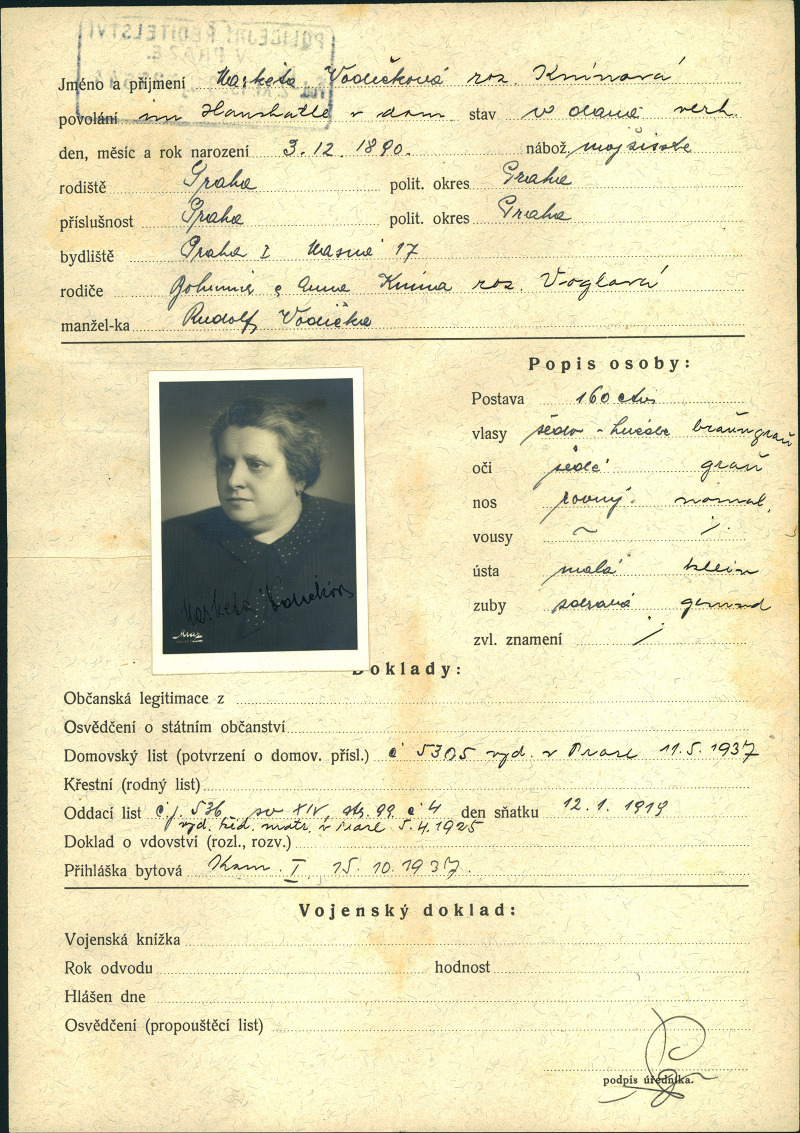 POLICEJNÍ ŘEDITELSTVÍ
V PRAZE.
Jméno a příjmení Markéta Vodičková roz. Knínová
povolání im Haushalte v dom stav vdaná verh.
den, měsíc a rok narození 3. 12. 1890. nábož. mojžíšské
rodiště Praha polit. okres Praha
příslušnost Praha polit. okres Praha
bydliště Praha I Masná 17
rodiče Bohumil a Anna Knína roz. Voglová
manžel-ka Rudolf Vodička
Popis osoby:
Postava 160 ctm
vlasy šedo - hnědé braungrau
oči šedé grau
nos rovný normal.
vousy ~ /.
ústa malá klein
zuby zdravé gesund
zvl. znamení /.
Markéta Vodičková
Doklady:
Občanská legitimace z
Osvědčení o státním občanství
Domovský list (potvrzení o domov. přísl.) č 5305 vyd. v Praze 11. 5. 1937
Křestní (rodný list)
Oddací list č.j. 536 XIV, str. 99 č 4 den sňatku 12. 1. 1919
vyd. matr. v Praze 5. 4. 1925
Doklad o vdovství (rozl., rozv.)
Přihláška bytová Kom. I 15. 10. 1937.
Vojenský doklad:
Vojenská knížka
Rok odvodu hodnost
Hlášen dne
Osvědčení (propouštěcí list)
podpis úředníka.